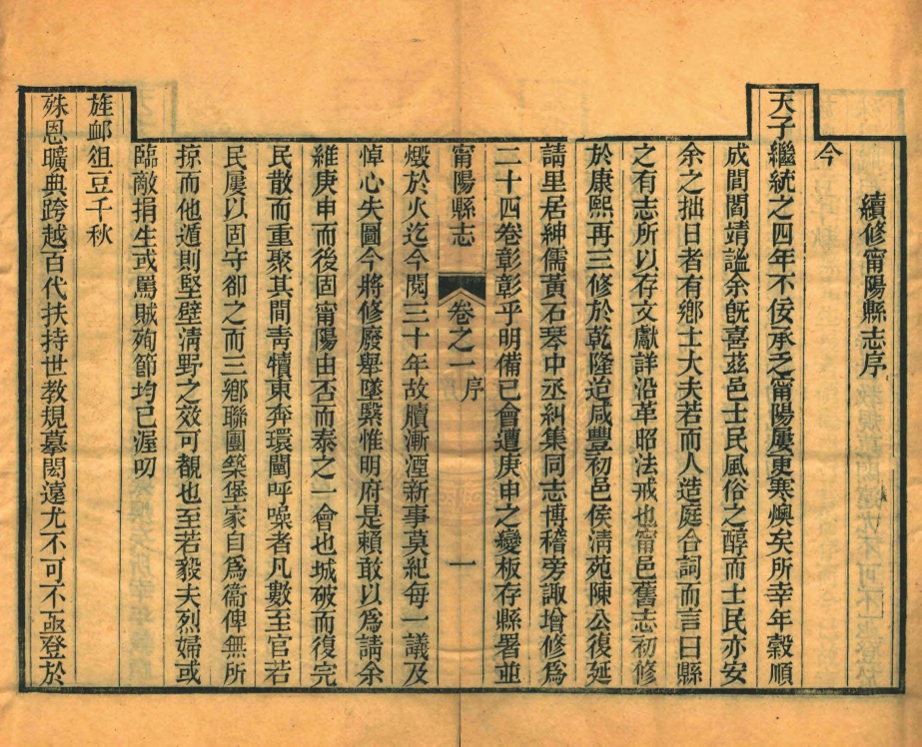 續修甯陽縣志序
今
天子繼統之四年不佞承乏甯陽屢更寒燠矣所幸年穀順
成閭閻靖謐余既喜茲邑士民風俗之醇而士民亦安
余之拙日者有鄉士大夫若而人造庭合詞而言曰縣
之有志所以存文獻詳沿革昭法戒也甯邑舊志初修
於康熙再三修於乾隆迨咸豐初邑侯清苑陳公復延
請里居紳儒黃石琴中丞糾集同志博稽旁諏增修為
二十四卷彰彰乎明備已會遭庚申之變板存縣署並
甯陽縣志 卷之一 序 一
燬於火迄今閱三十年故牘漸湮新事莫紀每一議及
悼心失圖今將修廢舉墜繄惟明府是賴敢以為請余
維庚申而後固甯陽由否而泰之一會也城破而復完
民散而重聚其間靑犢東奔環闉呼噪者凡數至官若
民屢以固守卻之而三鄉聯團築堡家自為衞俾無所
掠而他遁則堅壁清野之效可覩也至若毅夫烈婦或
臨敵捐生或罵賊殉節均已渥叨
旌卹俎豆千秋
殊恩曠典跨越百代扶持世教規摹閎遠尤不可不亟登於